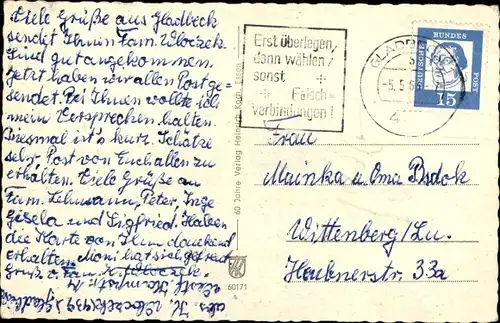 Viele Grüße aus Gladbeck
sendet Ihnen Fam. Wloczek.
Sind gut angekommen.
Jetzt haben wir allen Post ge-
sendet. Bei Ihnen wollte ich
mein Versprechen halten.
Diesmal ist's kurz. Schätze
sehr, Post von Euch allen zu
erhalten. Viele Grüße an
Fam. Lehmann, Peter, Inge
Gisela und Siegfried. Haben
die Karte von Ihnen dankend
erhalten. Moni hat sich gefreut
Gruß v. Fam. H. Wloczek.
Erst überlegen,
dann wählen
sonst
Falsch-
verbindungen!
GLADBECK
-5.5.6
4
DEUTSCHE BUNDESPOST
15
60 Jahre Verlag Heinrich Koch, Essen
60171
Frau
Mainka u. Oma
Wittenberg/Lu.
Heubnerstr. 33a